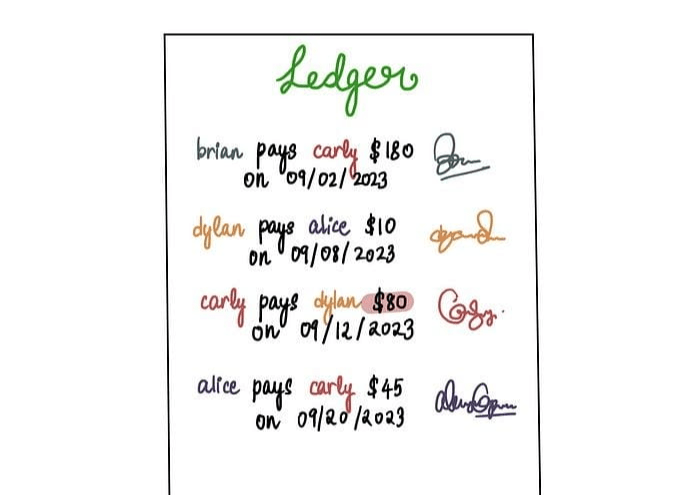 Ledger
brian pays carly $180
on 09/02/2023
dylan pays alice $10
on 09/08/2023
carly pays dylan $80
on 09/12/2023
alice pays carly $45
on 09/20/2023